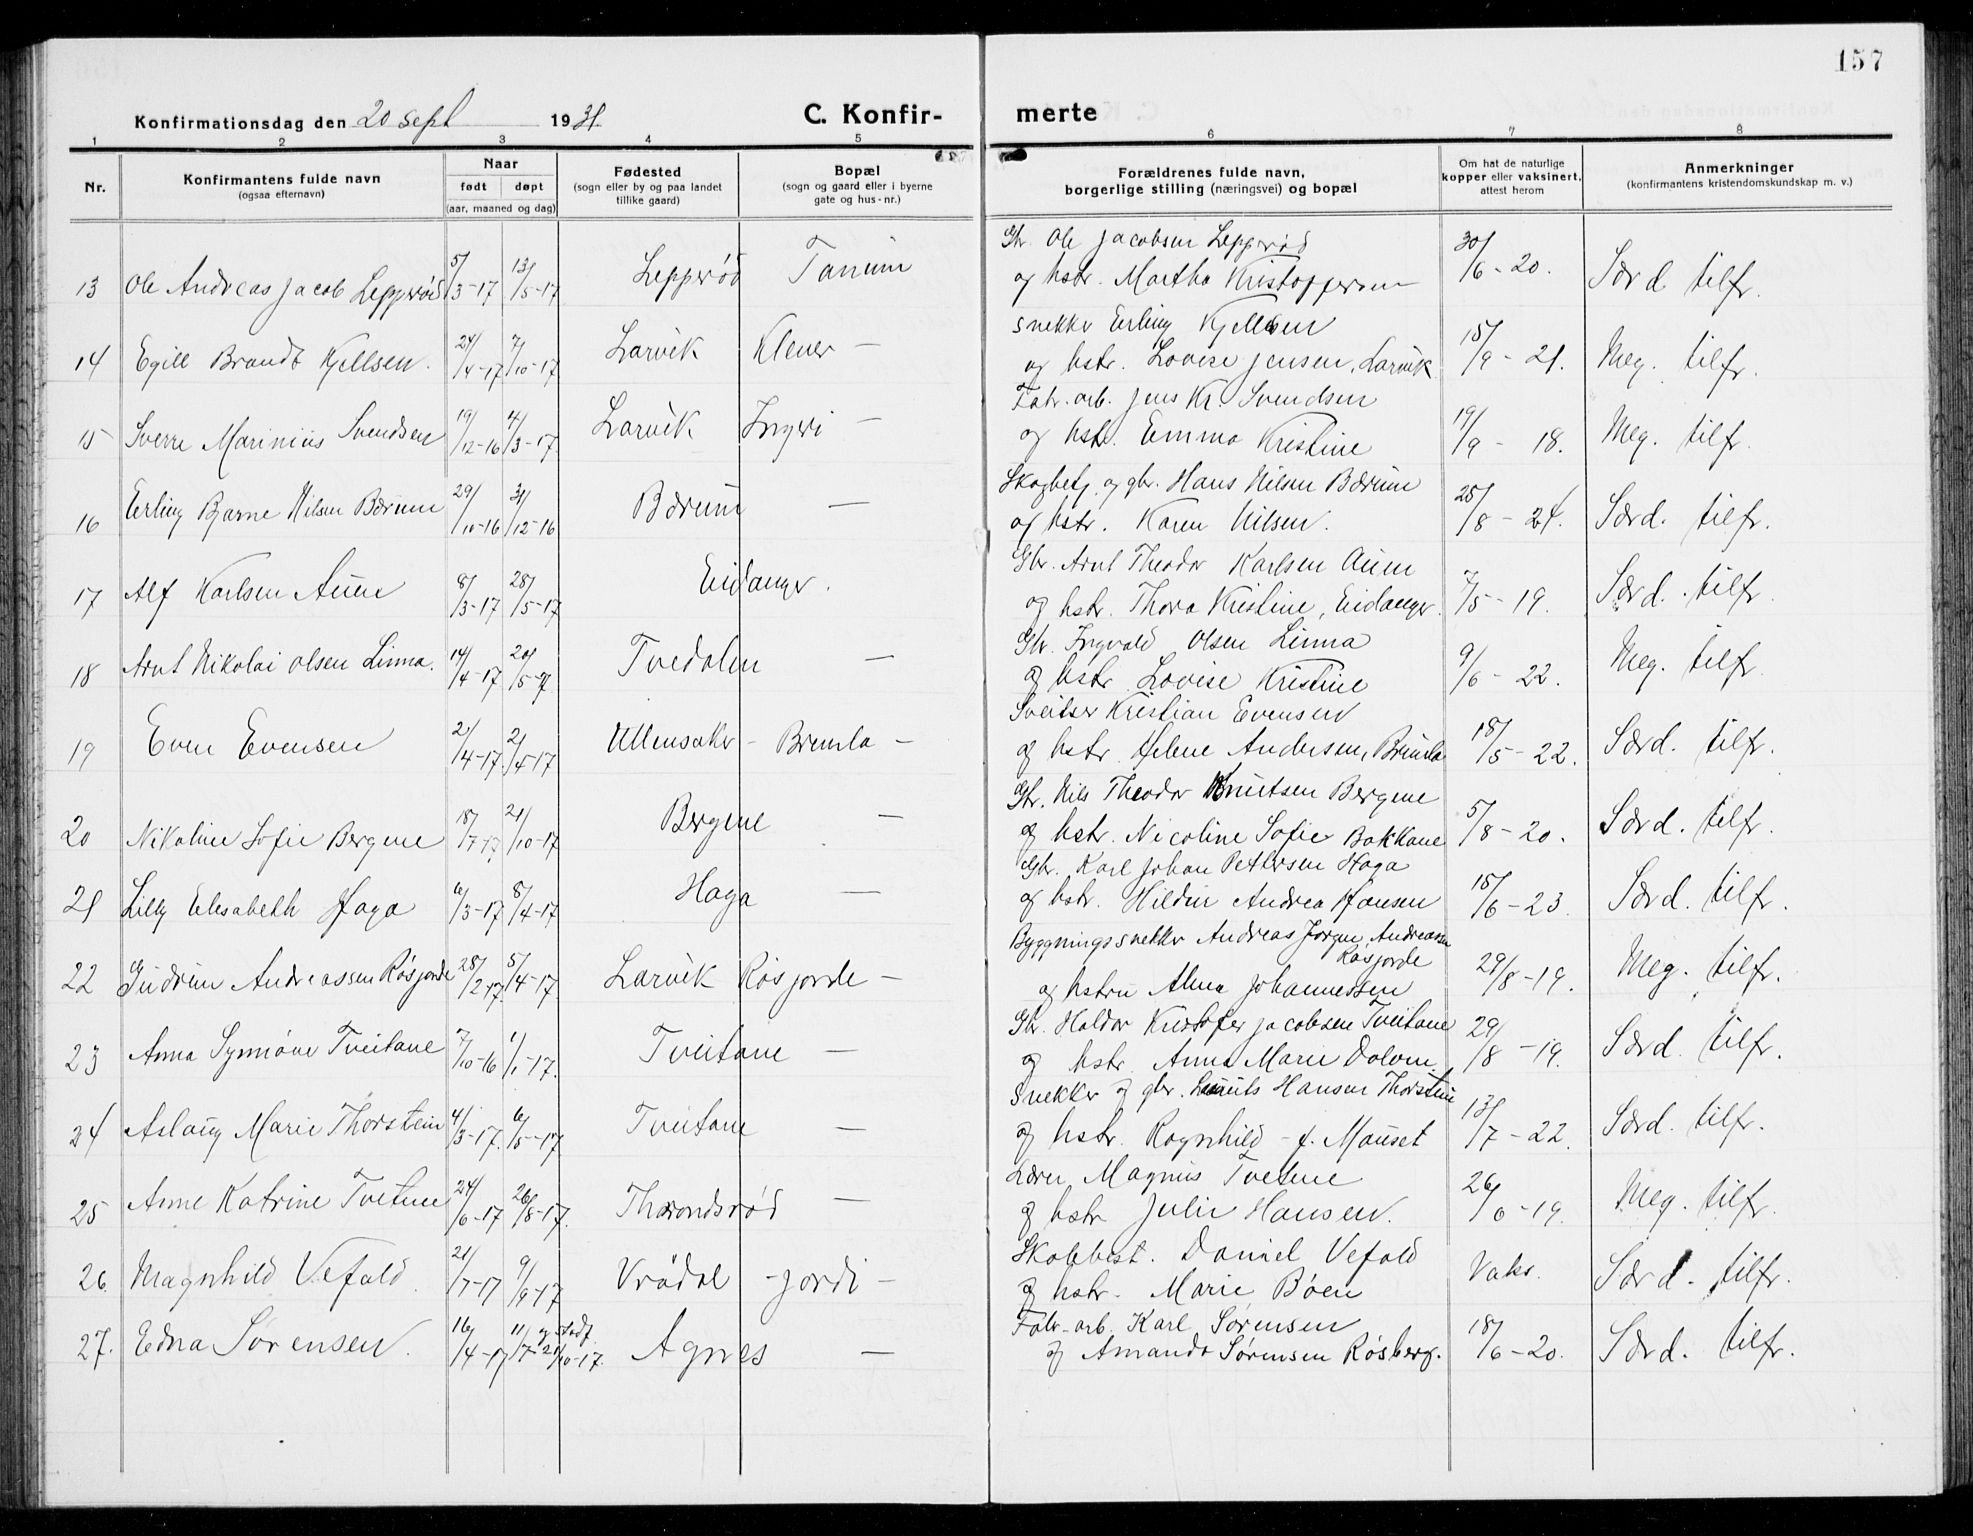 157
Konfirmationsdag den 20 sept 1931
C. Konfir-
merte
1 2 3 4 5 6 7 8
Nr.
Konfirmantens fulde navn
(ogsaa efternavn)
Naar
født døpt
(aar, maaned og dag)
Fødested
(sogn eller by og paa landet
tillike gaard)
Bopæl
(sogn og gaard eller i byerne
gate og hus-nr.)
Forældrenes fulde navn,
borgerlige stilling (næringsvei) og bopæl
Om hat de naturlige
kopper eller vaksinert,
attest herom
Anmerkninger
(konfirmantens kristendomskundskap m. v.)
Gbr. Ole Jacobsen Lepperød
13 Ole Andreas Jacob Lepperød 5/3-17 13/5-17 Lepperød Tanum og hstr. Martha Kristoffersen 30/6-20. Særd. tilfr.
Snekker Erling Kjellsen
14 Egill Brandt Kjellsen. 24/4-17 7/10-17 Larvik Klever — og hstr. Lovise Jensen, Larvik 15/9-21. Meg. tilfr.
Fabr. arb. Jens Kr. Svendsen
15 Sverre Marinius Svendsen 19/12-16 4/3-17 Larvik Jngvi — og hstr. Emma Kristine 19/9-18. Meg. tilfr.
Skogbetj. og gbr. Hans Nilsen Bærum
16 Erling Bjarne Nilsen Bærum 29/10-16 31/12-16 Bærum — og hstr. Karen Nilsen. 25/8-24. Særd. tilfr.
Gbr. Arnt Theodor Karlsen Auen
17 Alf Karlsen Auen 8/3-17 28/5-17 Eidanger. og hstr. Thora Kristine, Eidanger. 7/5-19. Særd. tilfr.
Gbr. Jngvald Olsen Linna
18 Arnt Nikolai Olsen Linna. 14/4-17 20/5-17 Tvedalen — og hstr. Lovise Kristine 9/6-22. Meg. tilfr.
Sveitser Kristian Evensen
19 Even Evensen 2/4-17. 21/4-17 Ullensaker - Brunla - og hstr. Helene Andersen, Brunla 18/5-22. Særd. tilfr.
Gbr. Nils Theodor Knutsen Bergene
20 Nikoline Sofie Bergene 18/7-17 21/10-17 Bergene — og hstr. Nicoline Sofie Bakkane 5/8-20. Særd. tilfr.
Gbr. Karl Johan Pettersen Haga
21 Lilly Elisabeth Haga 6/3-17 8/4-17 Haga — og hstr. Hildur Andrea Hansen 15/6-23. Særd. tilfr.
Byggningssnekker Andreas Jørgen Andreassen
Røsjorde
22 Gudrun Andreassen Røsjorde 28/2-17 5/4-17 Larvik Røsjorde - og hstru Alma Johannessen 29/8-19. Meg. tilfr.
Gbr. Haldor Kristofer Jacobsen Tveitane
23 Anna Synnøve Tveitane 7/10-16 1/1-17. Tveitane — og hstr. Anna Marie Dolven. 29/8-19. Særd. tilfr.
Snekker og gbr. Lauits Hansen Thorstein
24 Aslaug Marie Thorstein 4/3-17. 6/5-17 Tveitane — og hstr. Ragnhild - f. Mauset 13/7-22. Særd. tilfr.
Lærer Magnus Tvetene
25 Anne Katrine Tvetene 24/6-17 26/8-17. Tharondsrød — og hstr Julie Hansen. 26/6-19. Meg. tilfr.
Skolebest. Daniel Vefald
26 Magnhild Vefald 21/7-17 9/9-17 Vrådal - Jordi - og hstr. Marie Bøen Vaks. Særd. tilfr.
Fabr-arb. Karl Sørensen
27. Edna Sørensen. 16/4-17 11/7 og stadf. 21/10-17. Agnes — og Amanda Sørensen Røsberg. 18/6-20. Særd. tilfr.